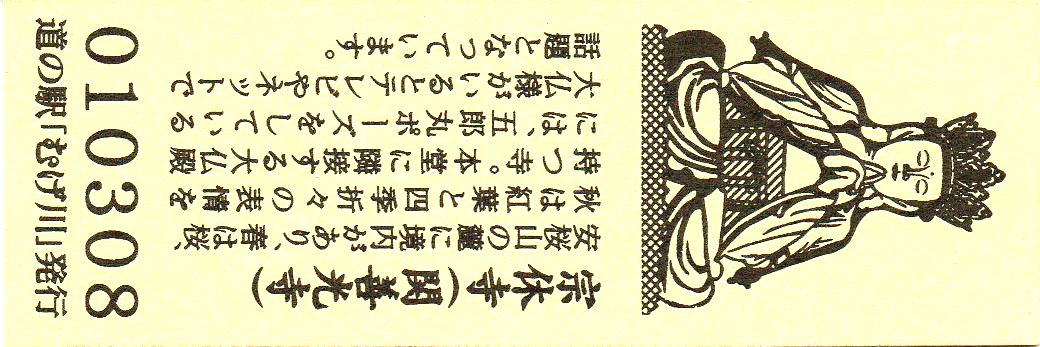 宗休寺（関善光寺）
安桜山の麓に境内があり、春は桜、
秋は紅葉と四季折々の表情を
持つ寺。本堂に隣接する大仏殿
には、五郎丸ポーズをしている
大仏様がいるとテレビやネットで
話題となっています。
010308
道の駅「むげ川」発行